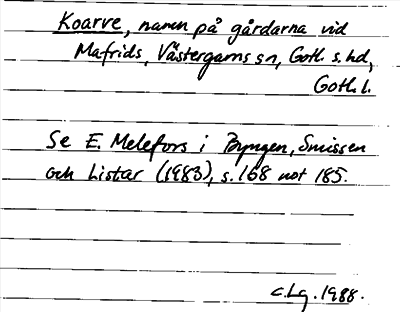 Koarve, namn på gårdarna vid
Mafrids, Västergarns sn, Gotl. s. hd,
Gotl. l.
Se E. Melefors i Byngen, Smissen
och Listar (1983), s. 168 not 185.
C.Lg. 1988.